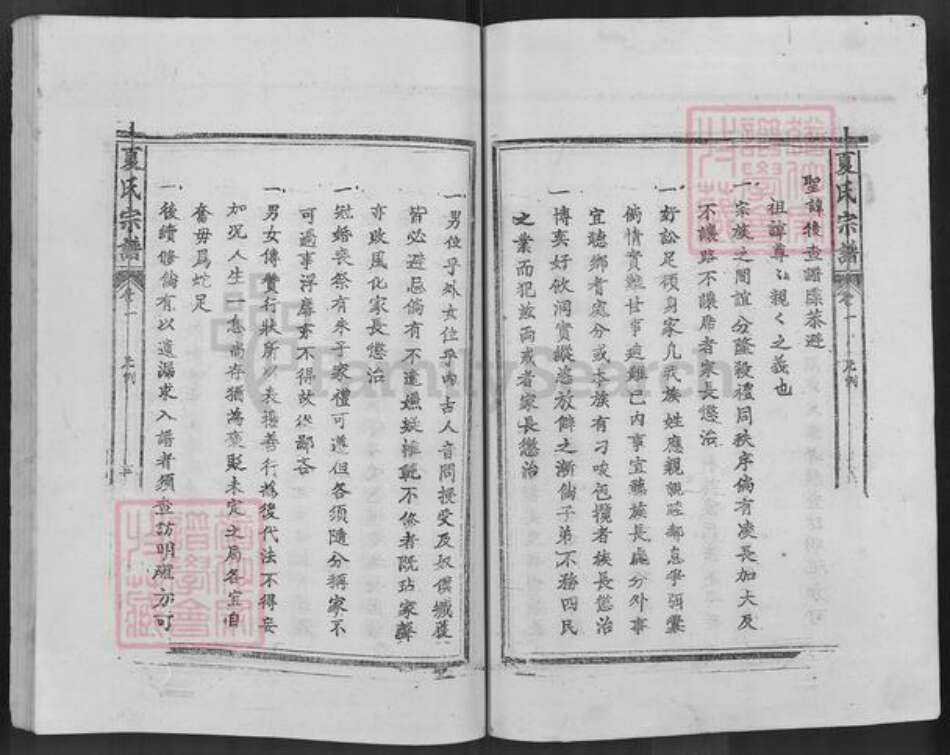 夏氏宗譜
卷一
凡例
聖諱後查譜牒恭避
祖諱尊祖親親之義也
一宗族之間誼分隆殺禮同秩序倘有凌長加大及
不讓路不讓席者家長懲治
一好訟足領身家凡我族姓應親親睦鄰息爭弭釁
倘情實難甘事迫難已內事宜聽族長處分外事
宜聽鄉者處分或本族有刁唆包攬者族長懲治
一博奕好飲洞實縱恣放僻之漸倘子弟不務四民
之業而犯茲兩戒者家長懲治
一男位乎外女位乎內古人音問授受及奴僕
皆必避忌倘有不遠嫌疑帷不修者既玷家聲
亦敗風化家長懲治
一冠婚喪祭有朱子家禮可遵但各須隨分稱家不
可過事浮靡亦不得故從鄙吝
一男女傳贊行狀所以表揚善行為後代法不得妄
加況人生一息尚存猶為褒貶未定之局各宜自
奮毋為蛇足
一後續修倘有以遺漏求入譜者須查訪明確方可
夏氏宗譜
卷一
凡例
FamilySearch